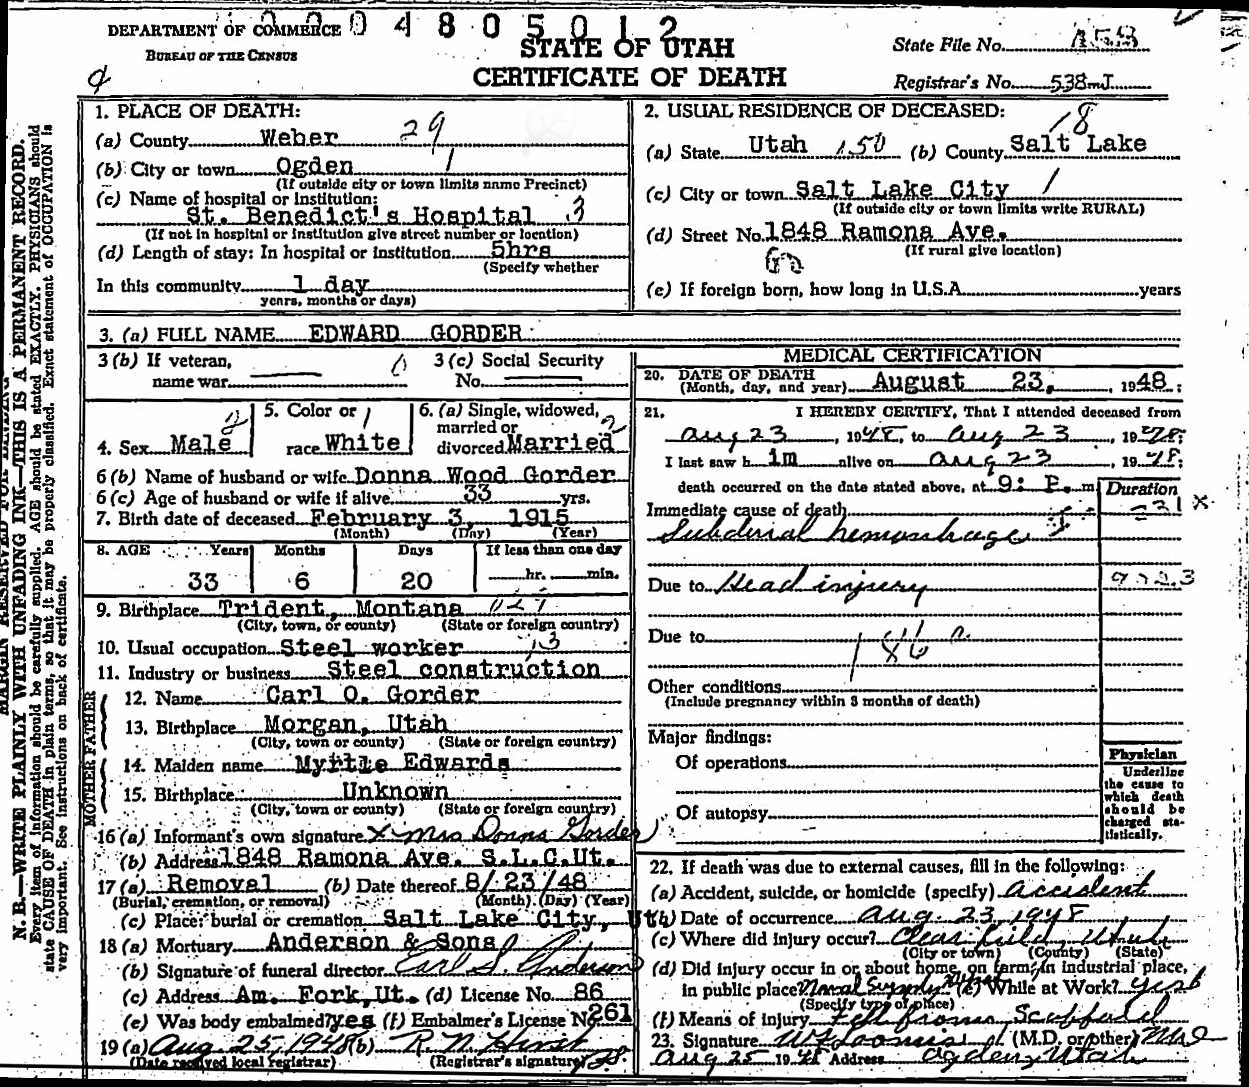 0004805012
DEPARTMENT OF COMMERCE
BUREAU OF THE CENSUS
STATE OF UTAH
CERTIFICATE OF DEATH
State File No.
Registrar's No. 538-J
MARGIN RESERVED FOR BINDING
N. B.—WRITE PLAINLY WITH UNFADING INK—THIS IS A PERMANENT RECORD.
Every item of information should be carefully supplied. AGE should be stated EXACTLY. PHYSICIANS should
state CAUSE OF DEATH in plain terms, so that it may be properly classified. Exact statement of OCCUPATION is
very important. See instructions on back of certificate.
1. PLACE OF DEATH:
(a) County Weber 29
(b) City or town Ogden 1
(If outside city or town limits name Precinct)
(c) Name of hospital or institution:
St. Benedict's Hospital 3
(If not in hospital or institution give street number or location)
(d) Length of stay: In hospital or institution 5hrs
(Specify whether
In this community 1 day
years, months or days)
2. USUAL RESIDENCE OF DECEASED:
18
(a) State Utah 150 (b) County Salt Lake
(c) City or town Salt Lake City 1
(If outside city or town limits write RURAL)
(d) Street No. 1848 Ramona Ave.
(If rural give location)
(e) If foreign born, how long in U.S.A. years
3. (a) FULL NAME EDWARD GORDER
3 (b) If veteran, name war 0
3 (c) Social Security No.
4. Sex Male
5. Color or race White 1
6. (a) Single, widowed, married or divorced Married 2
6 (b) Name of husband or wife Donna Wood Gorder
6 (c) Age of husband or wife if alive 33 yrs.
7. Birth date of deceased February 3, 1915
(Month) (Day) (Year)
8. AGE Years Months Days If less than one day
33 6 20 hr. min.
9. Birthplace Trident, Montana
(City, town, or county) (State or foreign country)
10. Usual occupation Steel worker
11. Industry or business Steel construction
FATHER
12. Name Carl O. Gorder
13. Birthplace Morgan, Utah
(City, town or county) (State or foreign country)
MOTHER
14. Maiden name Myrtle Edwards
15. Birthplace Unknown
(City, town or county) (State or foreign country)
16 (a) Informant's own signature x Mrs Donna Gorder
(b) Address 1848 Ramona Ave. S.L.C.Ut.
17 (a) Removal (b) Date thereof 8/23/48
(Burial, cremation, or removal) (Month) (Day) (Year)
(c) Place: burial or cremation Salt Lake City, Ut.
18 (a) Mortuary Anderson & Sons
(b) Signature of funeral director Earl S. Anderson
(c) Address Am. Fork, Ut. (d) License No. 86
(e) Was body embalmed? yes (f) Embalmer's License No. 261
19 (a) Aug 25, 1948 (b) R. N. Hirst
(Date received local registrar) (Registrar's signature)
MEDICAL CERTIFICATION
20. DATE OF DEATH
(Month, day, and year) August 23, 1948;
21. I HEREBY CERTIFY, That I attended deceased from
Aug 23, 1948, to Aug 23, 1948;
I last saw him alive on Aug 23, 1948;
death occurred on the date stated above, at 9: P. m
Duration
Immediate cause of death
Subdural hemorrhage
Due to Head injury
Due to
186 a
Other conditions
(Include pregnancy within 3 months of death)
Major findings:
Of operations
Of autopsy
Physician
Underline
the cause to
which death
should be
charged sta-
tistically.
22. If death was due to external causes, fill in the following:
(a) Accident, suicide, or homicide (specify) accident
(b) Date of occurrence Aug. 23, 1948
(c) Where did injury occur? Clearfield, Utah
(City or town) (County) (State)
(d) Did injury occur in or about home, on farm, in industrial place,
in public place? Naval Supply (e) While at Work? yes
(Specify type of place)
(f) Means of injury Fell from Scaffold
23. Signature (M.D. or other) M.D.
Aug 25 1948 Address Ogden, Utah